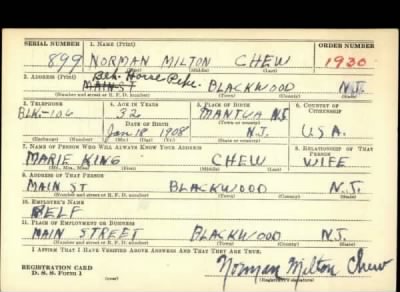 SERIAL NUMBER 1. NAME (Print) ORDER NUMBER
899 NORMAN MILTON CHEW 1930
(First) (Middle) (Last)
2. ADDRESS (Print) Blk. Horse Pike.
MAIN ST BLACKWOOD N.J.
(Number and street or R. F. D. number) (Town) (County) (State)
3. TELEPHONE 4. AGE IN YEARS 5. PLACE OF BIRTH 6. COUNTRY OF CITIZENSHIP
BLK-106 32 MANTUA N.J.
DATE OF BIRTH (Town or county)
Jan 18 1908 N.J. U.S.A.
(Exchange) (Number) (Mo.) (Day) (Yr.) (State or country)
7. NAME OF PERSON WHO WILL ALWAYS KNOW YOUR ADDRESS 8. RELATIONSHIP OF THAT PERSON
MARIE KING CHEW WIFE
(Mr., Mrs., Miss) (First) (Middle) (Last)
9. ADDRESS OF THAT PERSON
MAIN ST BLACKWOOD N.J.
(Number and street or R. F. D. number) (Town) (County) (State)
10. EMPLOYER'S NAME
SELF
11. PLACE OF EMPLOYMENT OR BUSINESS
MAIN STREET BLACKWOOD N.J.
(Number and street or R. F. D. number) (Town) (County) (State)
I AFFIRM THAT I HAVE VERIFIED ABOVE ANSWERS AND THAT THEY ARE TRUE.
REGISTRATION CARD
D. S. S. Form 1
Norman Milton Chew
(Registrant's signature)